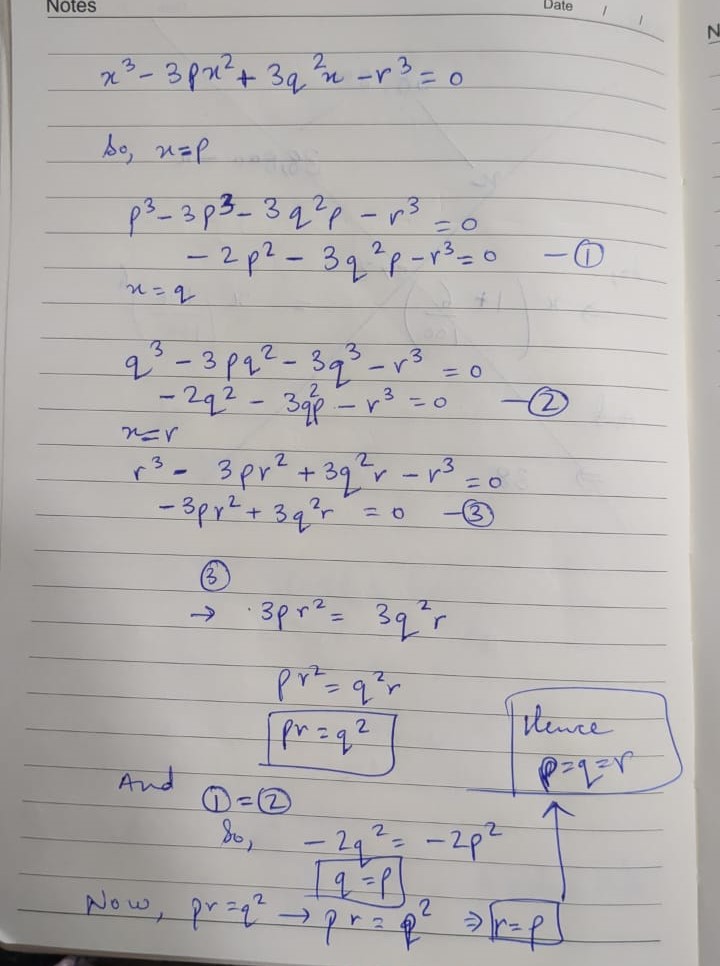 Notes
Date / /
N
x³ - 3px² + 3q²x - r³ = 0
So, x=p
p³ - 3p³ - 3q²p - r³ = 0
- 2p² - 3q²p - r³ = 0 - ①
x = q
q³ - 3pq² - 3q³ - r³ = 0
- 2q² - 3q²p - r³ = 0 - ②
x=r
r³ - 3pr² + 3q²r - r³ = 0
- 3pr² + 3q²r = 0 - ③
③
→ 3pr² = 3q²r
pr² = q²r
pr = q²
Hence
p=q=r
And ① = ②
So, - 2q² = - 2p²
q = p
Now, pr = q² → pr = p² ⇒ r = p